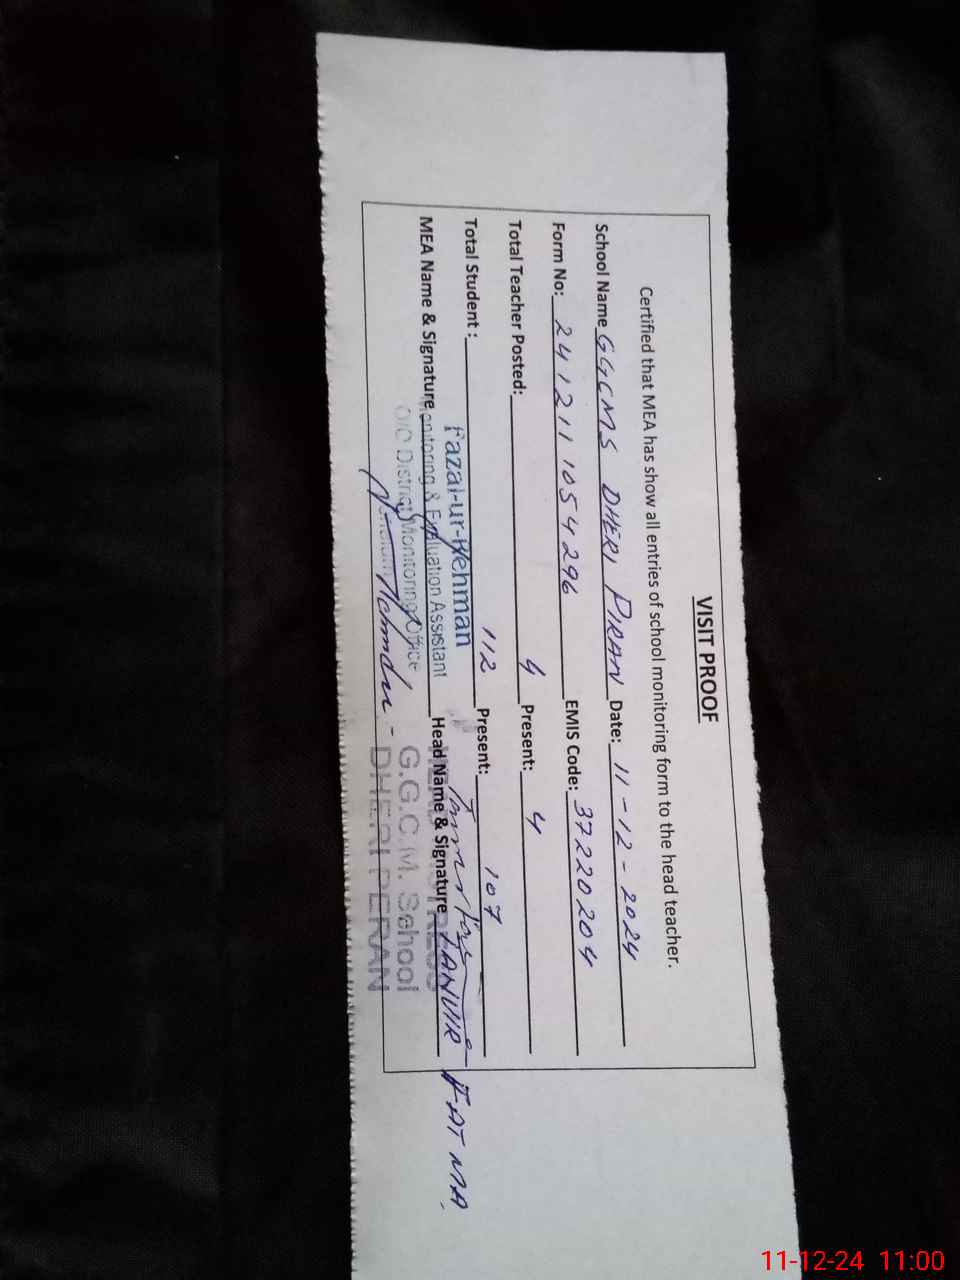 VISIT PROOF
Certified that MEA has show all entries of school monitoring form to the head teacher.
School Name GGCMS DHERI PIRAN Date: 11-12-2024
Form No: 241211 1054296 EMIS Code: 37220204
Total Teacher Posted: 4 Present: 4
Total Student : 112 Present: 107
MEA Name & Signature Head Name & Signature TANVIR FATMA
Fazal-ur-Rehman
Monitoring & Evaluation Assistant
O/O District Monitoring Office
HEAD MISTRESS
G.G.C.M. School
DHERI PERAN
11-12-24 11:00